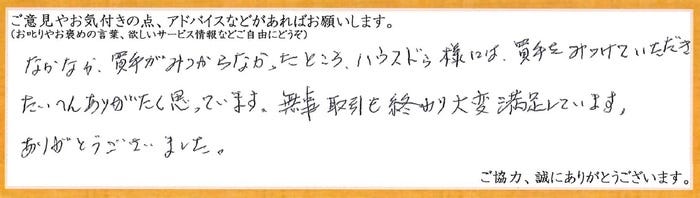 ご意見やお気付きの点、アドバイスなどがあればお願いします。
(お叱りやお褒めの言葉、欲しいサービス情報などご自由にどうぞ)
なかなか、買手がみつからなかったところ、ハウスドゥ様には、買手をみつけていただき
たいへんありがたく思っています。無事取引も終わり大変満足しています。
ありがとうございました。
ご協力、誠にありがとうございます。